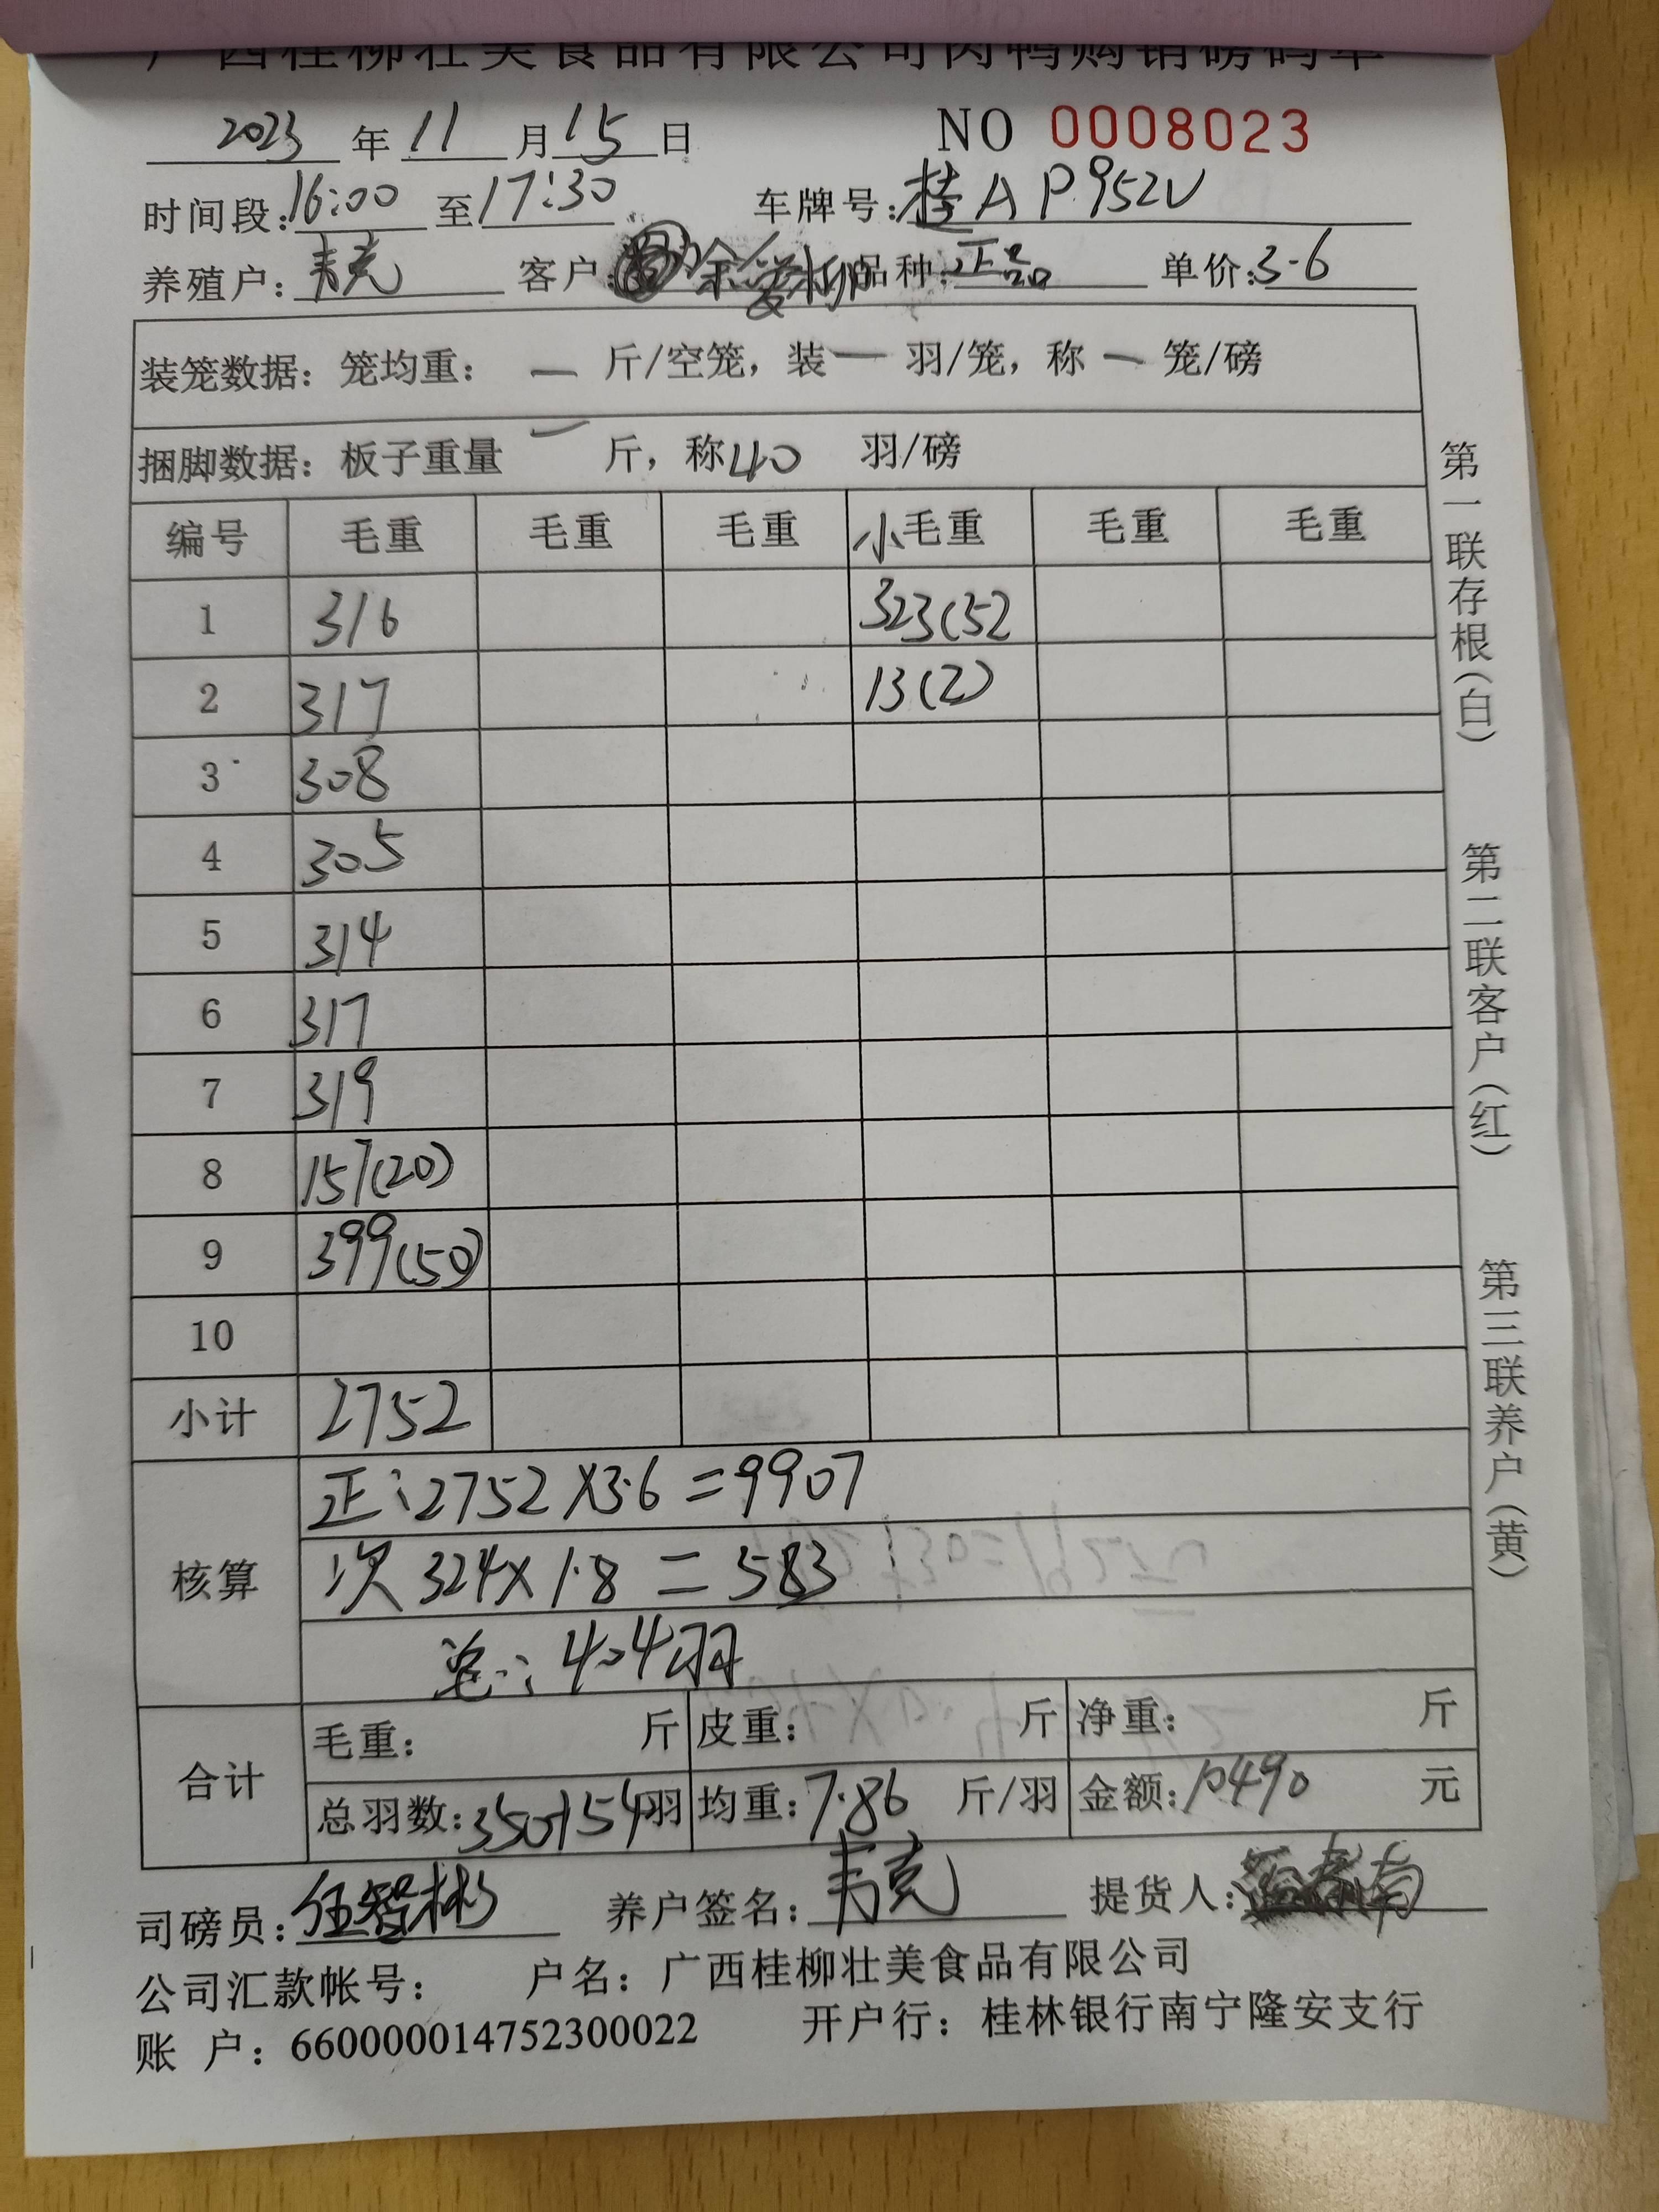 广西桂柳壮美食品有限公司肉鸭购销磅码单
2023年11月15日 NO 0008023
时间段:16:00至17:30 车牌号:桂AP952U
养殖户:韦克 客户: 品种:正品 单价:3.6
装笼数据:笼均重:一斤/空笼,装一羽/笼,称一笼/磅
捆脚数据:板子重量一斤,称40羽/磅
编号 毛重 毛重 毛重 小毛重 毛重 毛重
1 316 323(52
2 317 13(2)
3 308
4 305
5 314
6 317
7 319
8 157(20)
9 399(50)
10
小计 2752
核算 正:2752×3.6=9907
次324×1.8=583
总:404羽
合计 毛重: 斤 皮重: 斤 净重: 斤
总羽数:350+54羽 均重:7.86斤/羽 金额:10490元
司磅员:任智彬 养户签名:韦克 提货人:
公司汇款帐号: 户名:广西桂柳壮美食品有限公司
账 户:660000014752300022 开户行:桂林银行南宁隆安支行
第一联存根(白)
第二联客户(红)
第三联养户(黄)